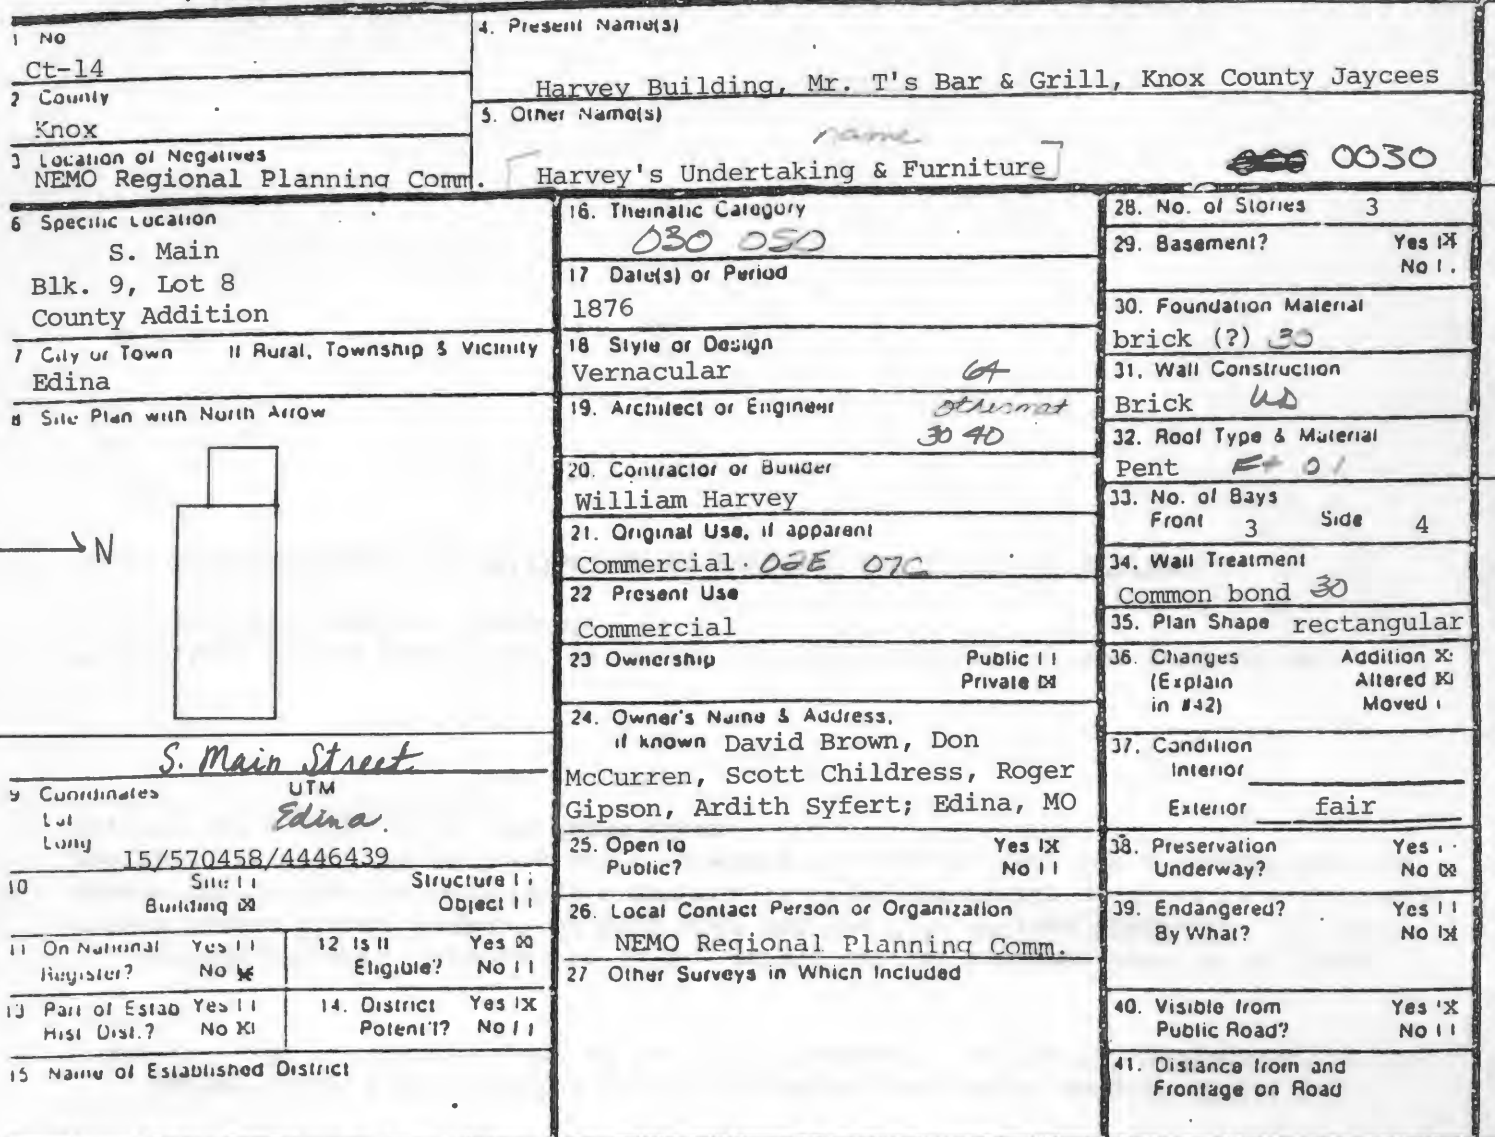 1 No
Ct-14
2 County
Knox
3 Location of Negatives
NEMO Regional Planning Comm.
4. Present Name(s)
Harvey Building, Mr. T's Bar & Grill, Knox County Jaycees
5. Other Name(s)
name
[Harvey's Undertaking & Furniture]
0030
6 Specific Location
S. Main
Blk. 9, Lot 8
County Addition
7 City or Town If Rural, Township & Vicinity
Edina
8 Site Plan with North Arrow
N
S. Main Street
9 Coordinates UTM
Lat
Long
Edina.
15/570458/4446439
10 Site | | Structure | |
Building |X| Object | |
11 On National Register? Yes | | No |X|
12 Is It Eligible? Yes |X| No | |
13 Part of Estab Hist Dist.? Yes | | No X|
14. District Potent'l? Yes |X No | |
15 Name of Established District
16. Thematic Category
030 050
17 Date(s) or Period
1876
18 Style or Design
Vernacular 64
19. Architect or Engineer
othermat
30 40
20. Contractor or Builder
William Harvey
21. Original Use, if apparent
Commercial 02E 07C
22 Present Use
Commercial
23 Ownership Public | |
Private |X|
24. Owner's Name & Address,
if known David Brown, Don
McCurren, Scott Childress, Roger
Gipson, Ardith Syfert; Edina, MO
25. Open to Yes |X
Public? No | |
26. Local Contact Person or Organization
NEMO Regional Planning Comm.
27 Other Surveys in Which Included
28. No. of Stories 3
29. Basement? Yes |X
No | .
30. Foundation Material
brick (?) 30
31. Wall Construction
Brick
32. Roof Type & Material
Pent 01
33. No. of Bays
Front 3 Side 4
34. Wall Treatment
Common bond 30
35. Plan Shape rectangular
36. Changes Addition X
(Explain Altered X|
in #42) Moved |
37. Condition
Interior
Exterior fair
38. Preservation Yes
Underway? No |X|
39. Endangered? Yes | |
By What? No |X
40. Visible from Yes X
Public Road? No | |
41. Distance from and
Frontage on Road